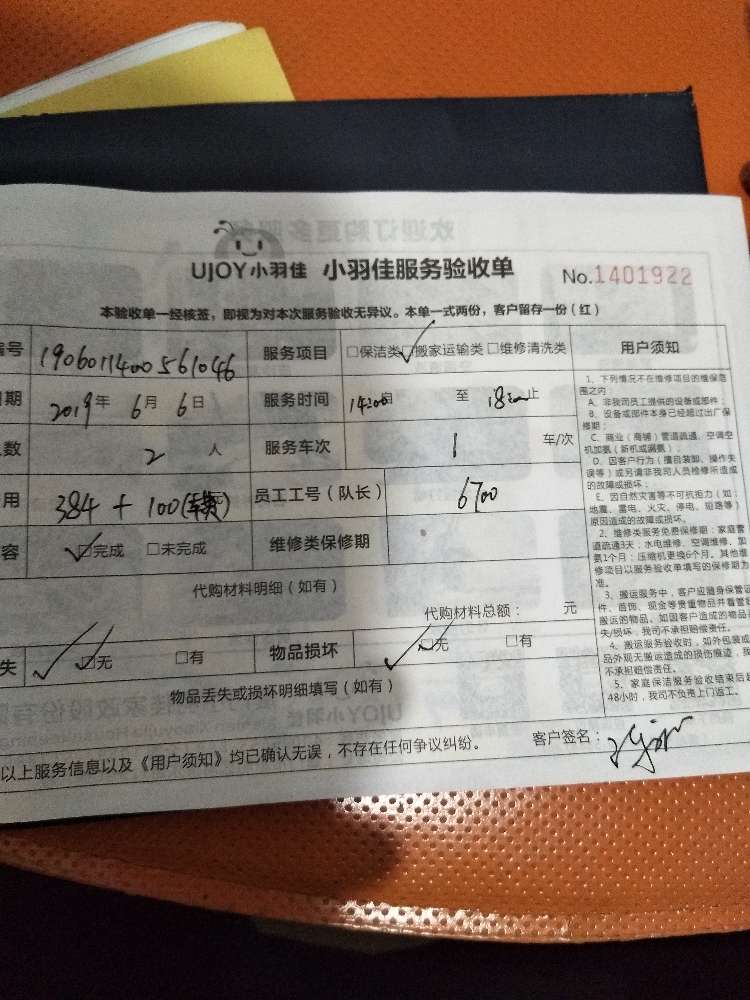 UJOY小羽佳 小羽佳服务验收单 No.1401922
本验收单一经核签，即视为对本次服务验收无异议。本单一式两份，客户留存一份（红）
编号 1906011400561046 服务项目 □保洁类 ☑搬家运输类 □维修清洗类 用户须知
期 2019年 6月 6日 服务时间 14:00 至 18:00 止
数 2 人 服务车次 1 车/次
用 384 + 100(车费) 员工工号（队长） 6700
容 ☑完成 □未完成 维修类保修期
代购材料明细（如有）
代购材料总额： 元
失 ☑无 □有 物品损坏 ☑无 □有
物品丢失或损坏明细填写（如有）
以上服务信息以及《用户须知》均已确认无误，不存在任何争议纠纷。 客户签名：
1、下列情况不在维修项目的维保范
围之内：
A、非我司员工提供的设备或部件；
B、设备或部件本身已经超过出厂保
修期；
C、商业（商铺）管道疏通、空调空
机加氨（新机或漏氨）
D、因客户行为（擅自装卸、操作失
误等）或另请非我司人员检修所造成
的故障或损坏；
E、因自然灾害等不可抗拒力（如：
地震、雷电、火灾、停电、短路等）
原因造成的故障或损坏。
2、维修类服务免费保修期：家庭管
道疏通3天；水电维修、空调维修、加
氨1个月；压缩机更换6个月。其他维
修项目以服务验收单填写的保修期为
准。
3、搬运服务中，客户应随身保管证
件、首饰、现金等贵重物品并看管起
搬运的物品。如因客户造成的物品丢
失/损坏，我司不承担赔偿责任。
4、搬运服务验收时，如外包装或
品外观无搬运造成的损伤痕迹，我
不承担赔偿责任。
5、家庭保洁服务验收结束后超
48小时，我司不负责上门返工。